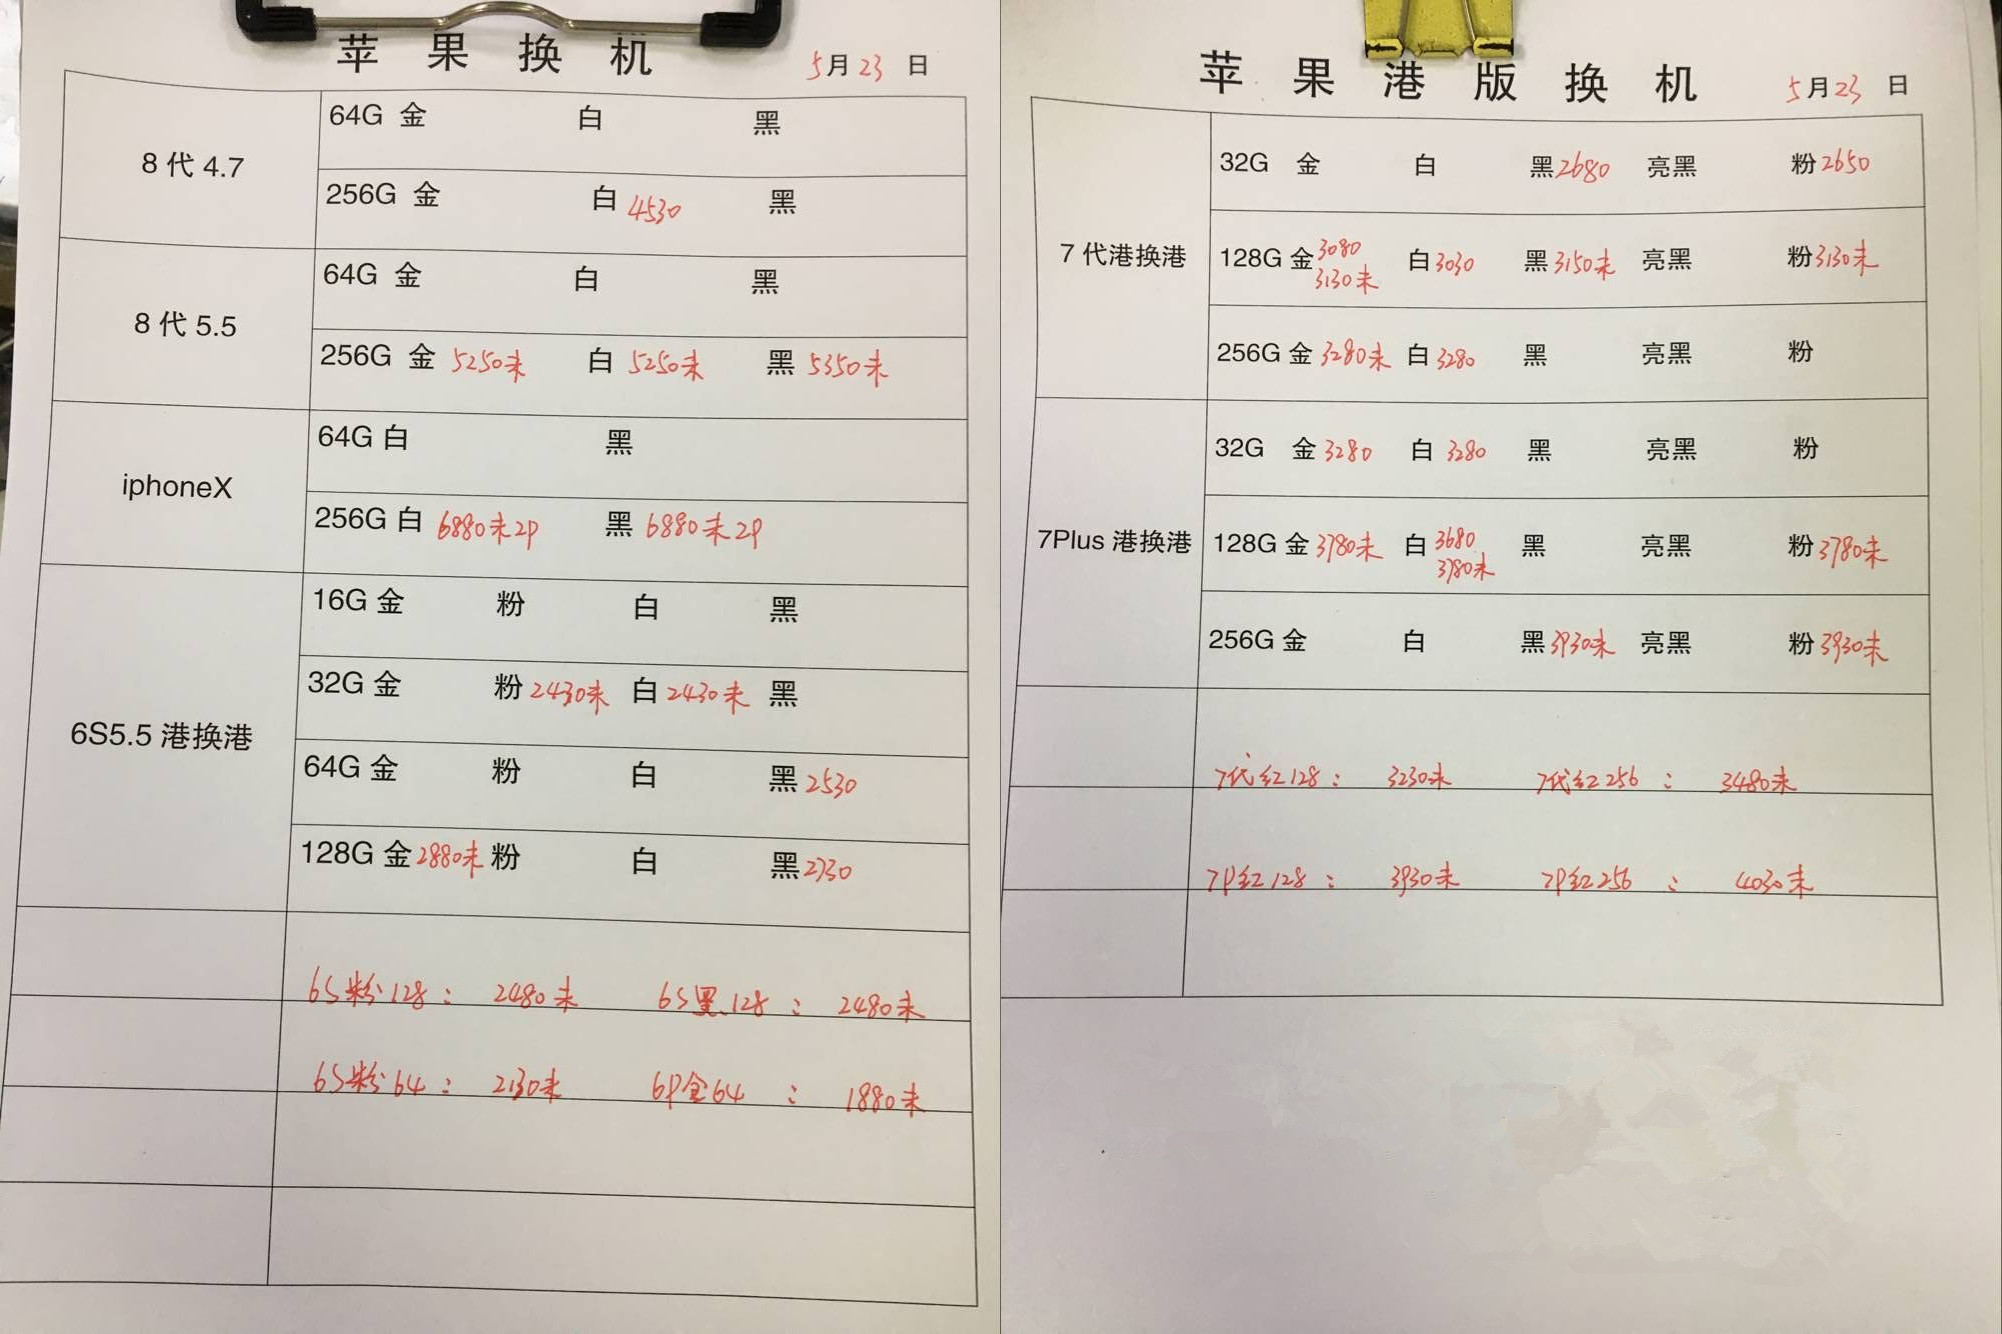 苹果换机 5月23日
8代4.7
64G 金 白 黑
256G 金 白 4530 黑
8代5.5
64G 金 白 黑
256G 金 5250未 白 5250未 黑 5350未
iphoneX
64G 白 黑
256G 白 6880未2P 黑 6880未2P
6S5.5港换港
16G 金 粉 白 黑
32G 金 粉 2430未 白 2430未 黑
64G 金 粉 白 黑 2530
128G 金 2880未 粉 白 黑 2730
6S粉128: 2480未 6S黑128: 2480未
6S粉64: 2130未 6P金64: 1880未
苹果港版换机 5月23日
7代港换港
32G 金 白 黑 2680 亮黑 粉 2650
128G 金 3080 3130未 白 3030 黑 3150未 亮黑 粉 3130未
256G 金 3280未 白 3280 黑 亮黑 粉
7Plus港换港
32G 金 3280 白 3280 黑 亮黑 粉
128G 金 3780未 白 3680 3780未 黑 亮黑 粉 3780未
256G 金 白 黑 3930未 亮黑 粉 3930未
7代红128: 3230未 7代红256: 3480未
7P红128: 3930未 7P红256: 4030未